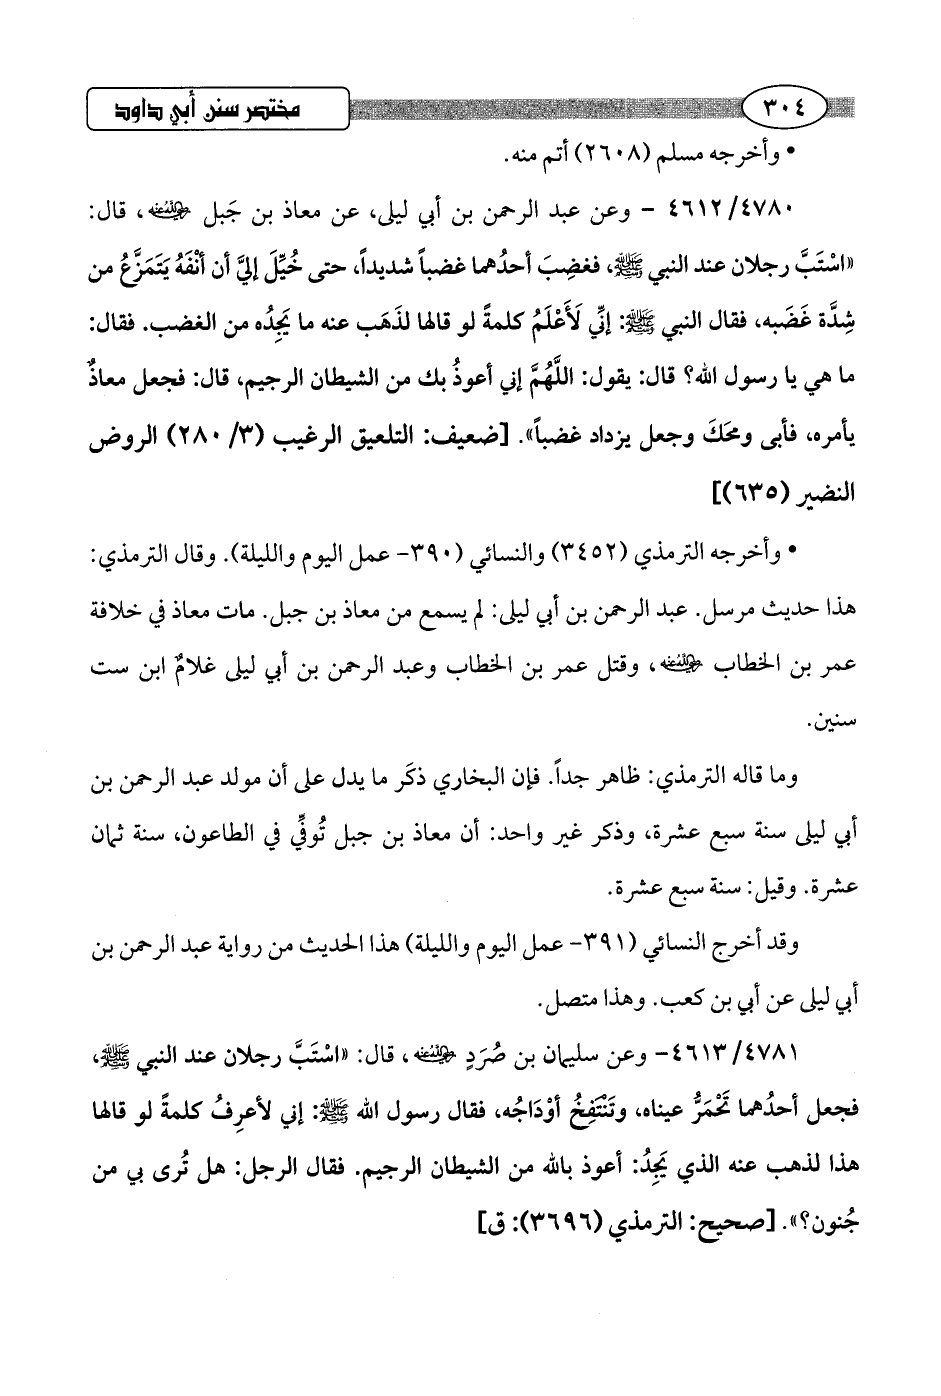 ٣٠٤ مختصر سنن أبي داود
• وأخرجه مسلم (٢٦٠٨) أتم منه.
٤٦١٢/٤٧٨٠ - وعن عبد الرحمن بن أبي ليلى، عن معاذ بن جَبل رضي الله عنه، قال:
«اسْتَبَّ رجلان عند النبي ﷺ، فغضِبَ أحدُهما غضباً شديداً، حتى خُيِّلَ إليَّ أن أنْفَهُ يَتَمَزَّعُ من
شِدَّة غَضَبه، فقال النبي ﷺ: إنِّي لَأَعْلَمُ كلمةً لو قالها لذَهَب عنه ما يَجِدُه من الغضب. فقال:
ما هي يا رسول الله؟ قال: يقول: اللَّهُمَّ إني أعوذُ بك من الشيطان الرجيم، قال: فجعل معاذٌ
يأمره، فأبى ومَحَكَ وجعل يزداد غضباً». [ضعيف: التعليق الرغيب (٣/ ٢٨٠) الروض
النضير (٦٣٥)]
• وأخرجه الترمذي (٣٤٥٢) والنسائي (٣٩٠- عمل اليوم والليلة). وقال الترمذي:
هذا حديث مرسل. عبد الرحمن بن أبي ليلى: لم يسمع من معاذ بن جبل. مات معاذ في خلافة
عمر بن الخطاب رضي الله عنه، وقتل عمر بن الخطاب وعبد الرحمن بن أبي ليلى غلامٌ ابن ست
سنين.
وما قاله الترمذي: ظاهر جداً. فإن البخاري ذكَر ما يدل على أن مولد عبد الرحمن بن
أبي ليلى سنة سبع عشرة، وذكر غير واحد: أن معاذ بن جبل تُوفِّي في الطاعون، سنة ثمان
عشرة. وقيل: سنة سبع عشرة.
وقد أخرج النسائي (٣٩١- عمل اليوم والليلة) هذا الحديث من رواية عبد الرحمن بن
أبي ليلى عن أبي بن كعب. وهذا متصل.
٤٦١٣/٤٧٨١- وعن سليمان بن صُرَدٍ رضي الله عنه، قال: «اسْتَبَّ رجلان عند النبي ﷺ،
فجعل أحدُهما تَحْمَرُّ عيناه، وتَنْتَفِخُ أوْدَاجُه، فقال رسول الله ﷺ: إني لأعرِفُ كلمةً لو قالها
هذا لذهب عنه الذي يَجِدُ: أعوذ بالله من الشيطان الرجيم. فقال الرجل: هل تُرى بي من
جُنون؟». [صحيح: الترمذي (٣٦٩٦): ق]